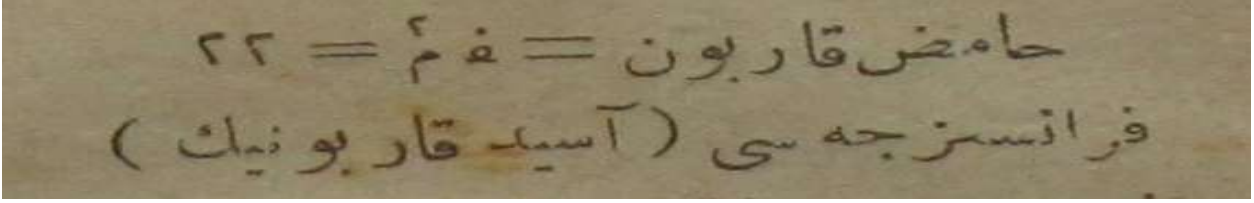 حامض قاربون = ف م٢ = ٢٢
فرانسزجه سی ( آسید قاربونيك )